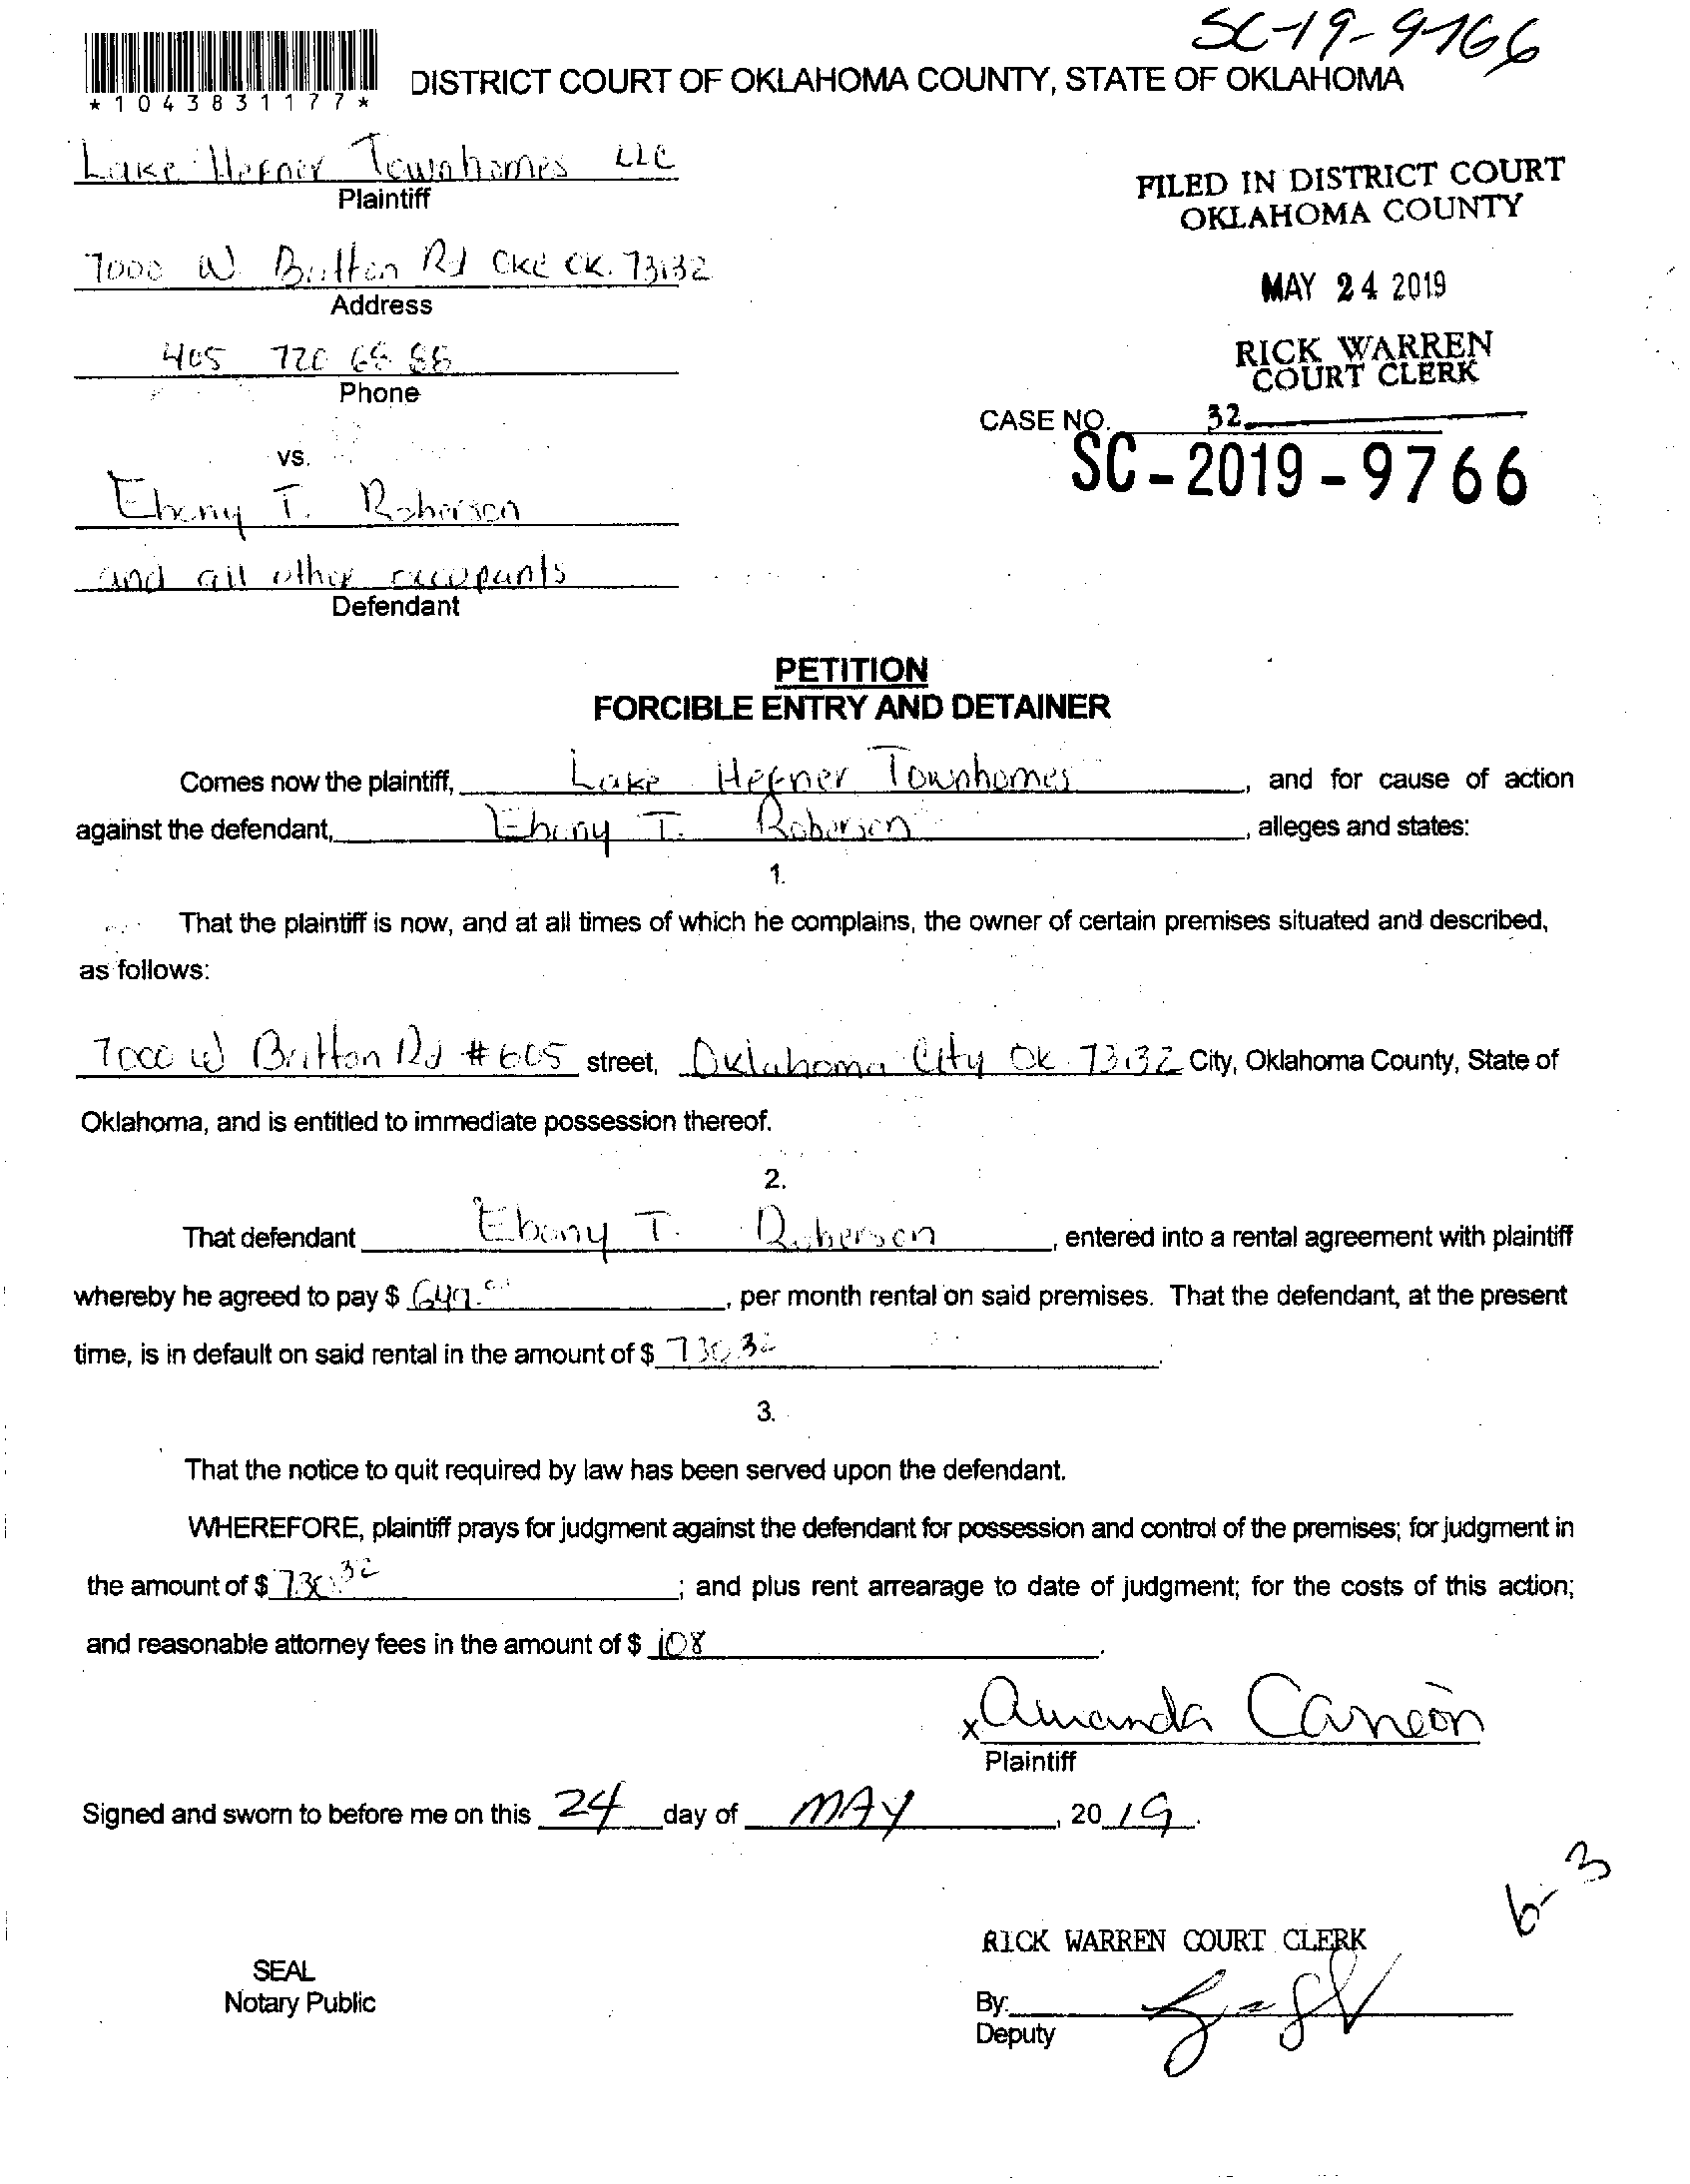 SC-19-9766
*1043831177*
DISTRICT COURT OF OKLAHOMA COUNTY, STATE OF OKLAHOMA
Lake Hefner Townhomes LLC
Plaintiff
FILED IN DISTRICT COURT
OKLAHOMA COUNTY
7000 W Britton Rd OKC OK. 73132
Address
MAY 24 2019
405 720 6888
Phone
RICK WARREN
COURT CLERK
CASE NO. 32
SC-2019-9766
vs.
Ebony T. Roberson
and all other occupants
Defendant
PETITION
FORCIBLE ENTRY AND DETAINER
Comes now the plaintiff, Lake Hefner Townhomes, and for cause of action
against the defendant, Ebony T. Roberson, alleges and states:
1.
That the plaintiff is now, and at all times of which he complains, the owner of certain premises situated and described,
as follows:
7000 W Britton Rd #605 street, Oklahoma City Ok 73132 City, Oklahoma County, State of
Oklahoma, and is entitled to immediate possession thereof.
2.
That defendant Ebony T. Roberson, entered into a rental agreement with plaintiff
whereby he agreed to pay $ 649.00, per month rental on said premises. That the defendant, at the present
time, is in default on said rental in the amount of $ 730.32.
3.
That the notice to quit required by law has been served upon the defendant.
WHEREFORE, plaintiff prays for judgment against the defendant for possession and control of the premises; for judgment in
the amount of $ 730.32; and plus rent arrearage to date of judgment; for the costs of this action;
and reasonable attorney fees in the amount of $ 108.
x Amanda
Plaintiff
Signed and sworn to before me on this 24 day of MAY, 20 19.
6-3
RICK WARREN COURT CLERK
SEAL
Notary Public
By:
Deputy